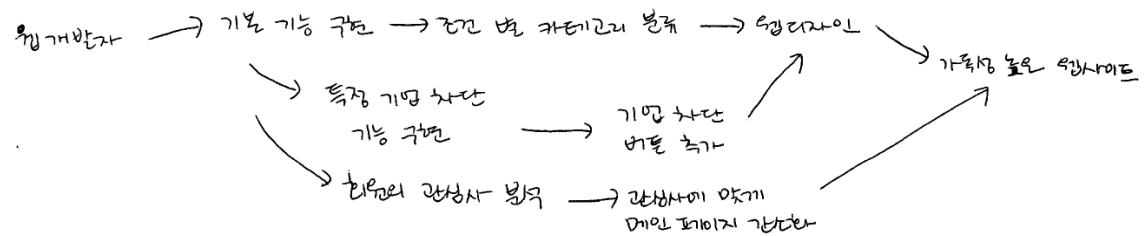 웹개발자
기본 기능 구현
조건 별 카테고리 분류
웹디자인
가독성 높은 웹사이트
특정 기업 차단
기능 구현
기업 차단
버튼 추가
회원의 관심사 분석
관심사에 맞게
메인 페이지 간소화